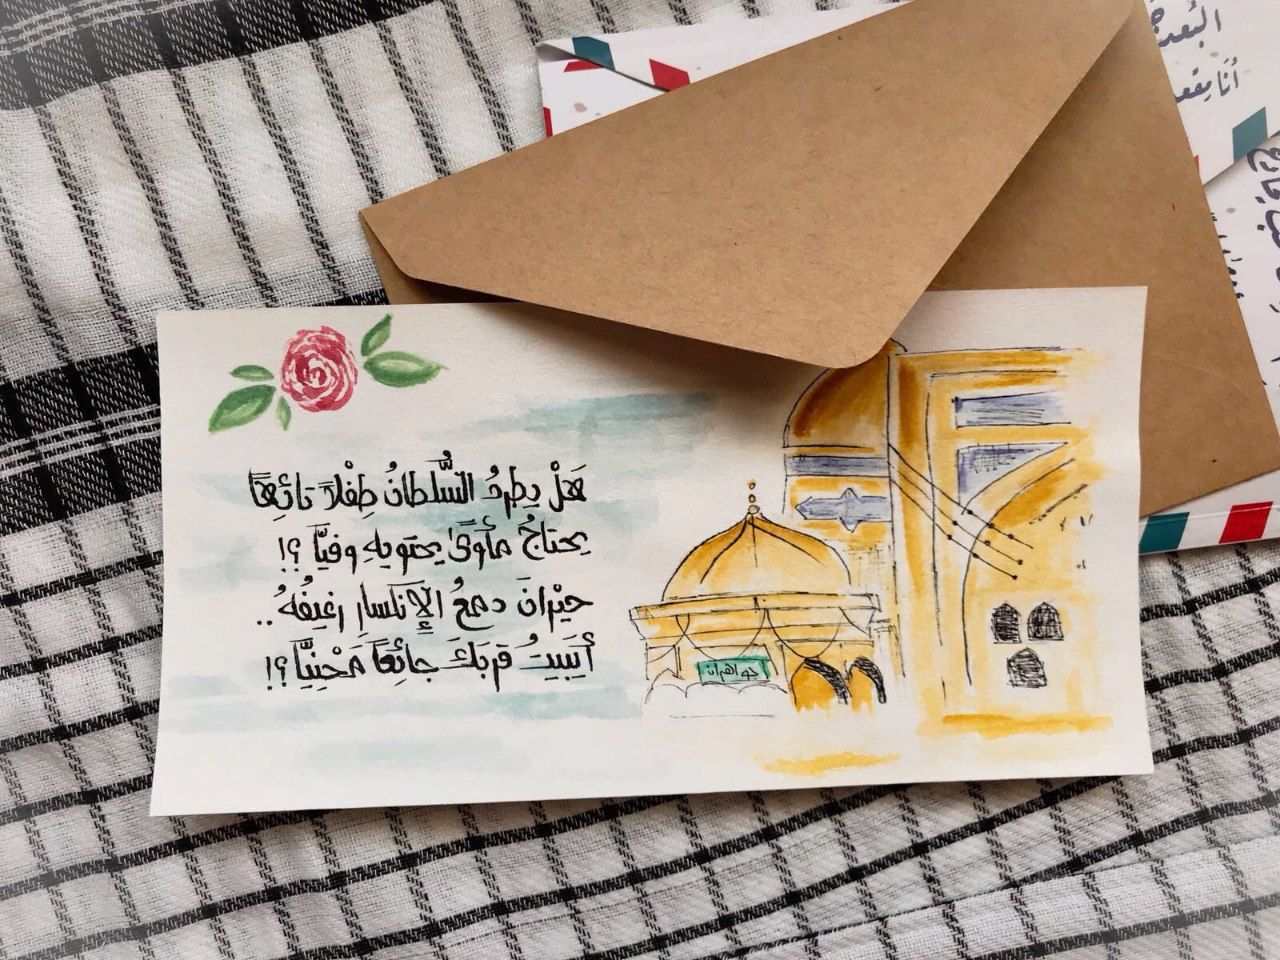 هَلْ يطردُ السُّلطانُ طِفْلاً تائِهًا
يحتاجُ مأوىً يحتويهِ وفيَّا ؟!
حيْرانَ دمعُ الإنكسارِ رغيفُهُ..
أيَبيتُ قربَكَ جائِعاً مَحْنِيَّا ؟!
البُعد